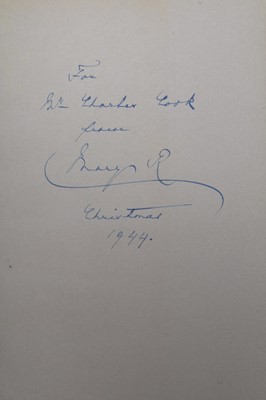 For
Mr Charles Cook
from
Mary R
Christmas
1944.